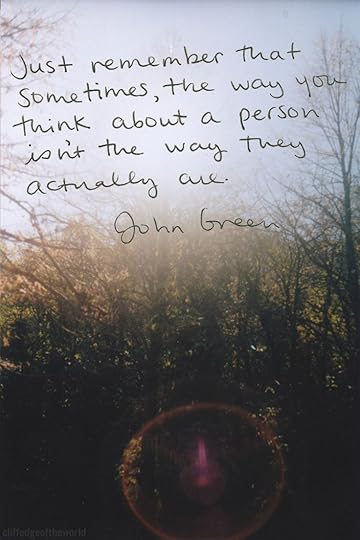 Just remember that
sometimes, the way you
think about a person
isn't the way they
actually are.
John Green
cliffedgeoftheworld